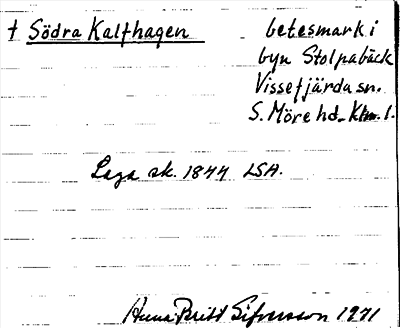 † Södra Kalfhagen betesmark i
byn Stolpabäck
Vissefjärda sn.
S. Möre hd. Klm. l.
Laga sk. 1844 LSA.
Anna Britt Sifversson 1971